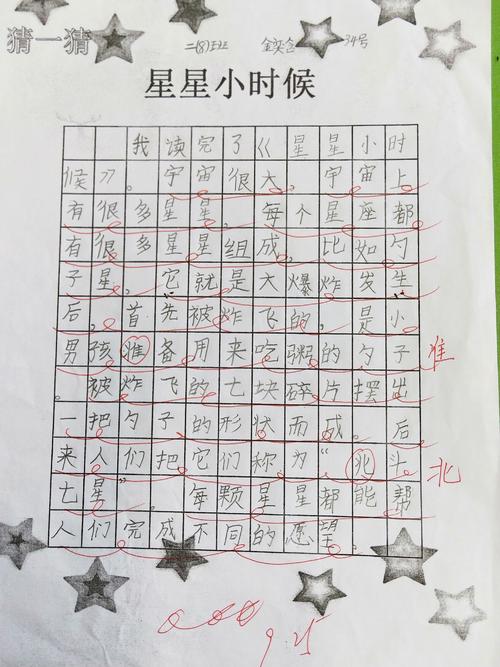 猜一猜
二(8)班 34号
星星小时候
我读完了《星星小时
候》。宇宙很大。宇宙上
有很多星星。每个星座都
有很多星星组成，比如勺
子星。它就是大爆炸发生
后，首先被炸飞的，是小
男孩准备用来吃粥的勺子
准
被炸飞的七块碎片摆出
一把勺子的形状而成。后
来人们把它们称为“北斗
北
七星”。每颗星星都能帮
人们完成不同的愿望。
9.25